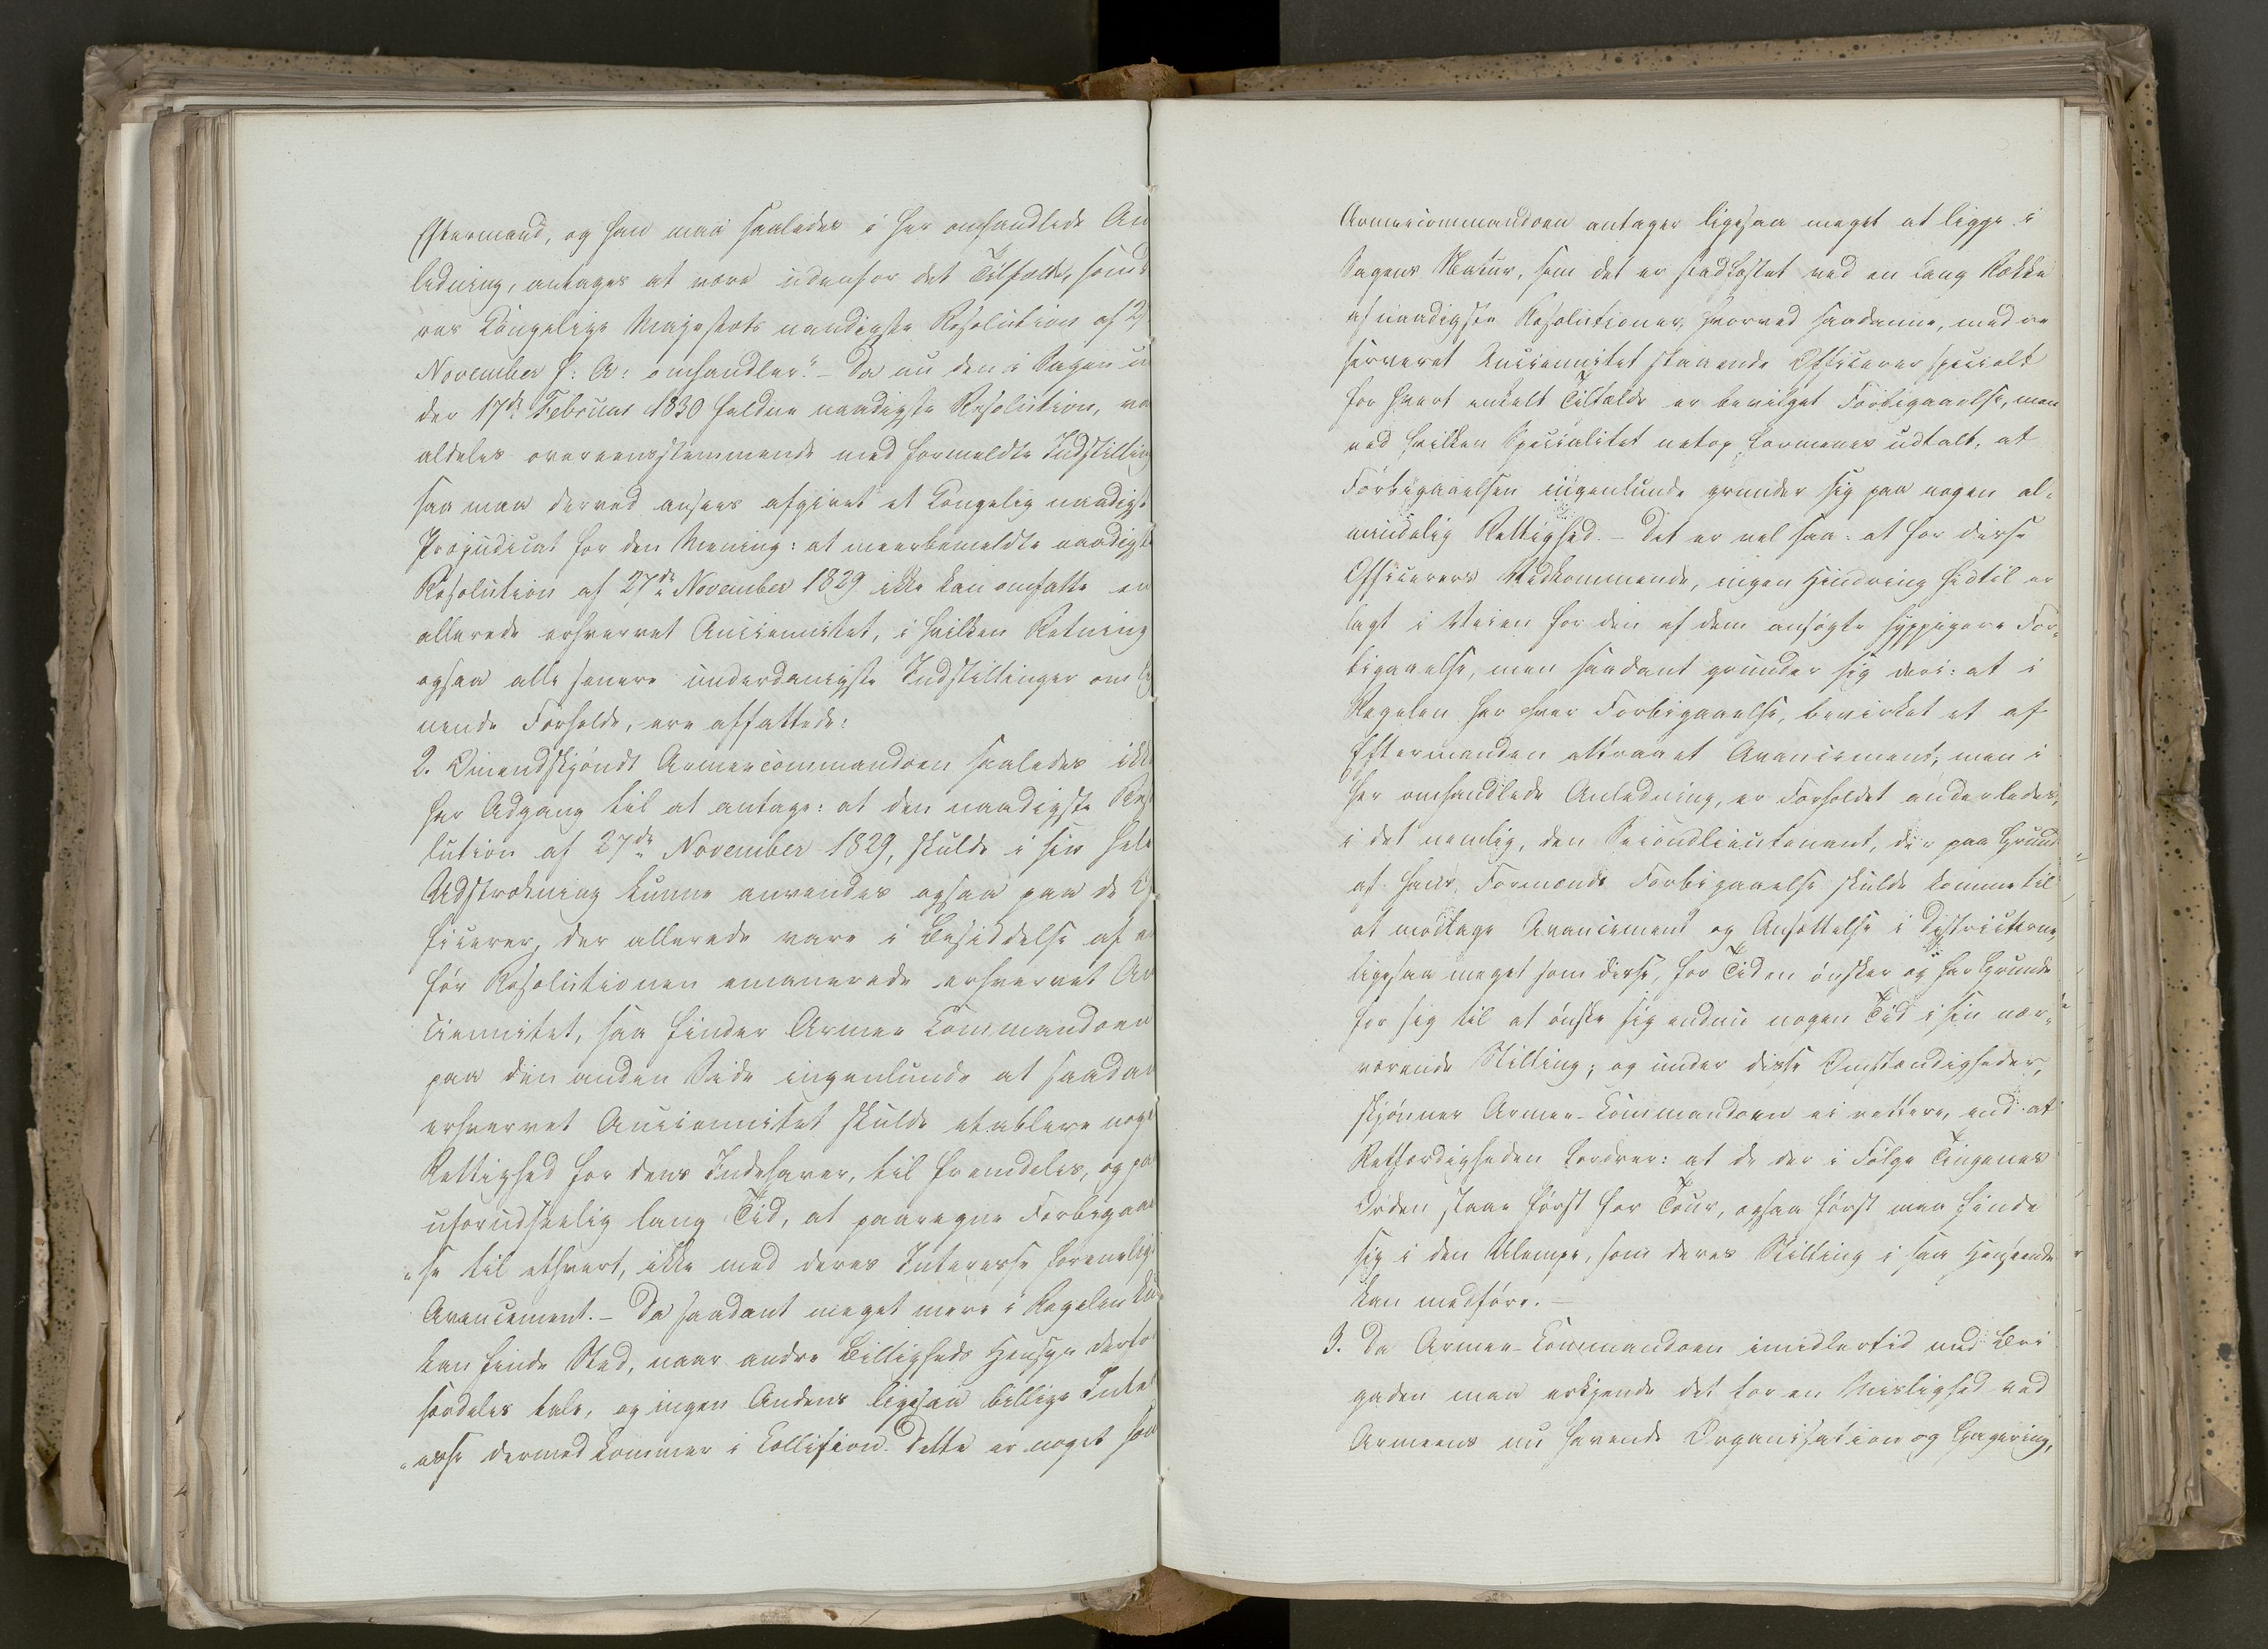 Eftermand, og han maa saaledes i her omhandlede An
ledning, antages at være udenfor det Tilfælde, som
res Kongelige Majestæts naadigste Resolution af 27
November f: A: omhandler." – Da nu den i Sagen un
der 17de Februar 1830 faldne naadigste Resolution, va
aldeles overeensstemmende med formeldte Indstilling
saa maa derved ansees afgivet et Kongelig naadigst
Præjudicat for den Mening: at meerbemeldte naadigste
Resolution af 27de November 1829 ikke kan omfatte en
allerede erhvervet Anciennitet, i hvilken Retning
ogsaa alle senere underdanigste Indstillinger om lig
nende Forholde, ere affattede:
2. Omendskjøndt Armeecommandoen saaledes ikke
har Adgang til at antage: at den naadigste Reso
lution af 27de November 1829, skulde i sin hele
Udstrækning kunne anvendes ogsaa paa de Of
ficerer, der allerede vare i Besiddelse af en
før Resolutionen emanerede erhvervet An
ciennitet, saa finder Armee Commandoen
paa den anden Side ingenlunde at saadan
erhvervet Anciennitet skulde etablere noge
Rettighed for dens Indehaver, til fremdeles, og paa
uforudseelig lang Tid, at paaregne Forbigaael
"se til ethvert, ikke med deres Interesse foreneligt
Avancement. – Da saadant meget mere i Regelen kun
kan finde Sted, naar andre Billigheds Hensyn derfo
særdeles tale, og ingen Andens ligesaa billige Inte
"resse dermed kommer i Collision. Dette er noget som
Armeecommandoen antager ligesaa meget at ligge i
Sagens Natur, som det er stadfæstet ved en lang Række
af naadigste Resolutioner, hvorved saadanne, med re
serveret Anciennitet staaende Officerer specielt
for hvert enkelt Tilfælde er bevilget Forbigaaelse, men
ved hvilken Specialitet netop formenes udtalt, at
Forbigaaelsen ingenlunde grunder sig paa nogen al-
mindelig Rettighed. – Det er vel saa: at for disse
Officerers Vedkommende, ingen Hindring hidtil er
lagt i Veien for den af dem ansøgte hyppigere For-
bigaaelse, men saadant grunder sig deri: at i
Regelen har hver Forbigaaelse, bevirket et af
Eftermanden attraaet Avancement, men i
her omhandlede Anledning, er Forholdet anderledes,
i det nemlig, den Secondlieutenant, der paa Grund
af hans Formænds Forbigaaelse skulde komme til
at modtage Avancement og Ansættelse i Districterne,
ligesaa meget som disse, for Tiden ønsker og har Grunde
for sig til at ønske sig endnu nogen Tid i sin nær-
værende Stilling; og under disse Omstændigheder,
skjønner Armee-Commandoen ei rettere, end at
Retfærdigheden fordrer: at de der i Følge Tingenes
Orden staae først for Tour, ogsaa først maa finde
sig i den Ulempe, som deres Stilling i saa Henseende
kan medføre. –
3. Da Armee-Commandoen imidlertid med Bri
gaden maa erkjende det for en Mislighed ved
Armeens nu havende Organisation og Gagering,